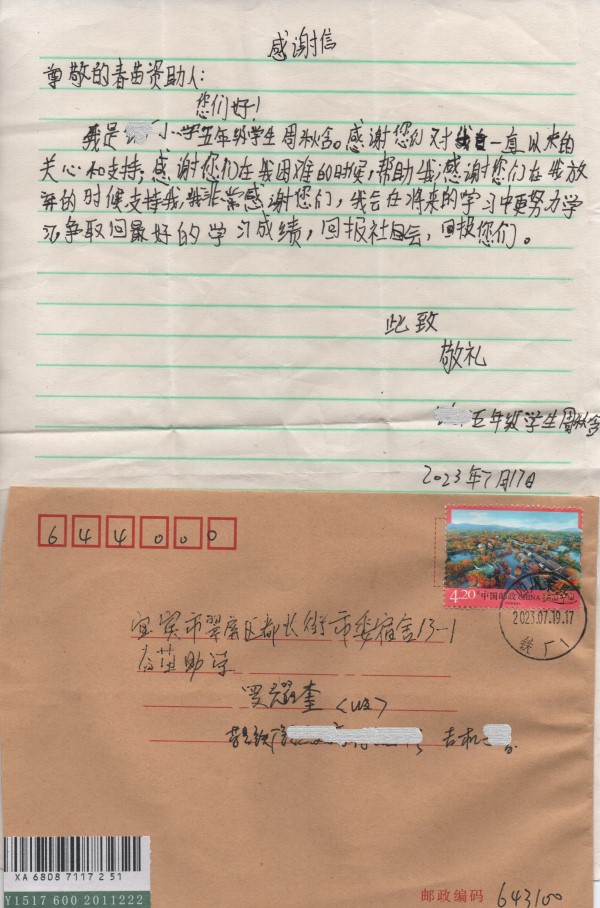 感谢信
尊敬的春苗资助人:
您们好!
我是 小学五年级学生周秋含。感谢您们对我一直以来的
关心和支持;感谢您们在我困难的时候,帮助我;感谢您们在我放
弃的时候支持我,我非常感谢您们,我会在将来的学习中更努力学
习,争取回最好的学习成绩,回报社会,回报您们。
此致
敬礼
五年级学生周秋含
2023年7月17日
644000
4.20元 中国邮政 CHINA
2023.07.19.17
宜宾市翠屏区都长街市委宿舍13-1
春苗助学
罗耀奎(收)
XA 6808 7117 2 51
Y1517 600 2011222
邮政编码 643100